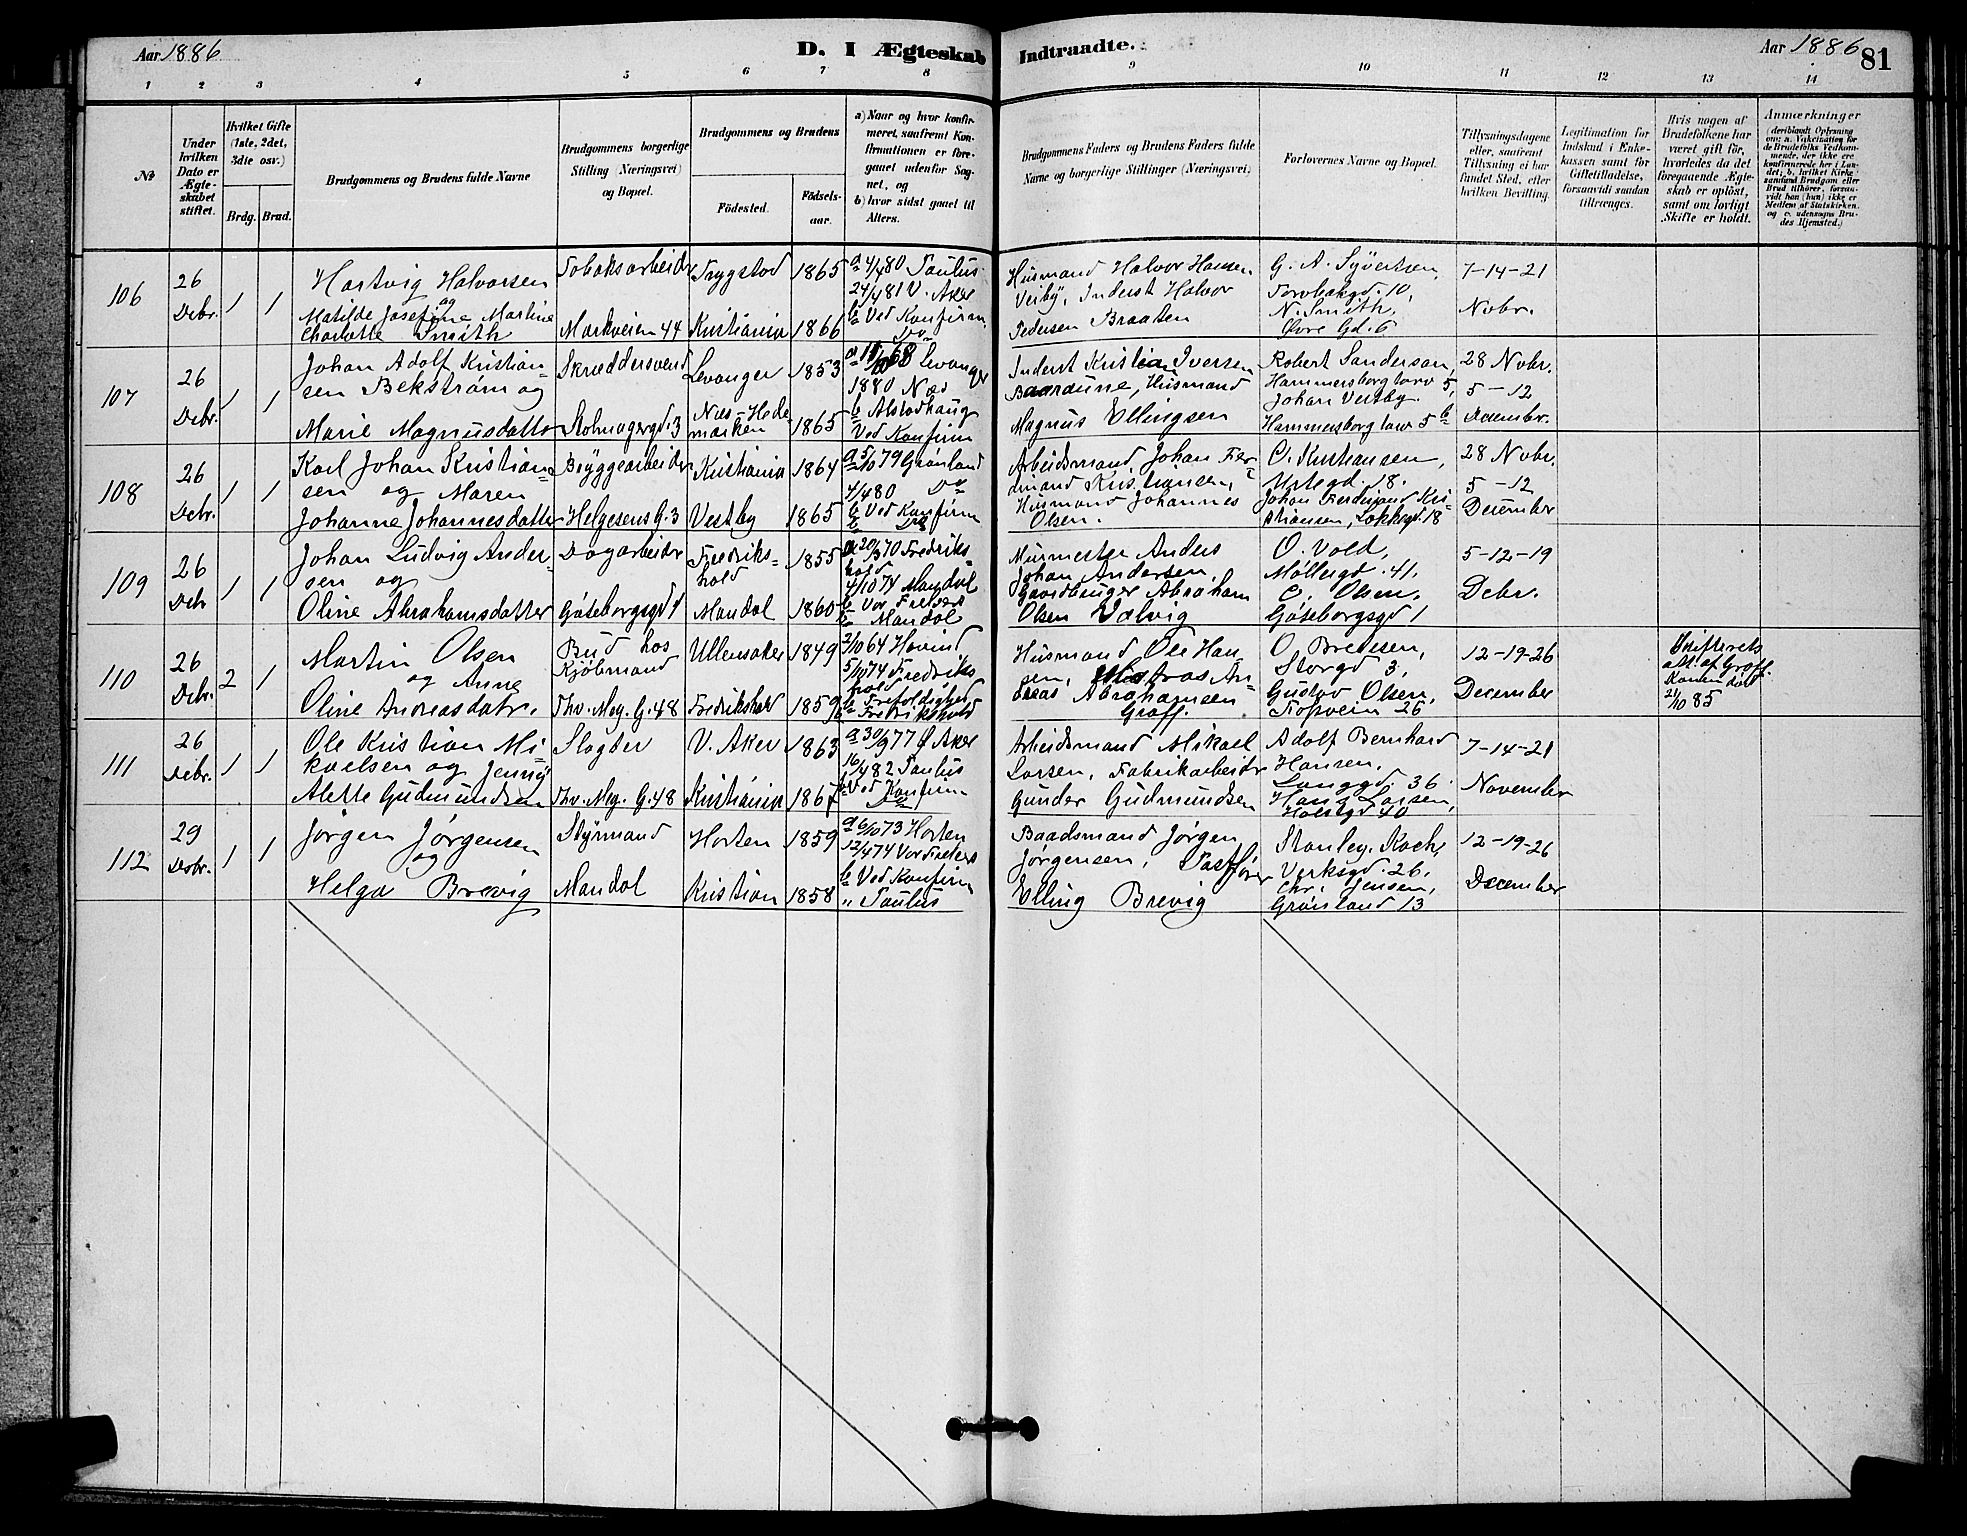 Aar 1886
D. I Ægteskab Indtraadte.
Aar 1886
81
1 2 3 4 5 6 7 8 9 10 11 12 13 14
№
Under hvilken Dato er Ægteskabet stiftet.
Hvilket Gifte (1ste, 2det, 3die osv.)
Brdg. Brud.
Brudgommens og Brudens fulde Navne
Brudgommens borgerlige Stilling (Næringsvei) og Bopæl.
Brudgommens og Brudens
Fødested.
Fødselsaar.
a) Naar og hvor konfirmeret, saafremt Konfirmationen er foregaaet udenfor Sognet, og
b) hvor sidst gaaet til Alters.
Brudgommens Faders og Brudens Faders fulde Navne og borgerlige Stillinger (Næringsvei)
Forlovernes Navne og Bopæl.
Tillysningsdagene eller, saafremt Tillysning ei har fundet Sted, efter hvilken Bevilling.
Legitimation for Indskud i Enkekassen samt for Giftetilladelse, forsaavidt saadan tiltrænges.
Hvis nogen af Brudefolkene har været gift før, hvorledes da det foregaaende Ægteskab er opløst, samt om lovligt Skifte er holdt.
Anmærkninger
(deriblandt Oplysning om: a. Vakcination for de Brudefolks Vedkommende, der ikke ere konfirmerede her i Landet; b. hvilket Kirkesamfund Brudgom eller Brud tilhører, forsaavidt han (hun) ikke er Medlem af Statskirken. og c. udensogns Brudes Hjemsted.)
106
26 Debr.
1 1
Hartvig Halvorsen
og
Matilde Josefine Martine
Charlotte Smith
Tobaksarbeider
Markveien 44
Trygstad 1865
Kristiania 1866
a 4/480 Paulus
24/481 V. Aker
b Ved Konfirm.
Do
Husmand Halvor Hansen
Veiby, Inderst Halvor
Pedersen Braaten
G. A. Syvertsen,
Torvbakgd. 10,
N. Smith,
Øvre Gd. 6
7-14-21
Nobr.
107
26 Debr.
1 1
Johan Adolf Kristian-
sen Bekstrøm og
Marie Magnusdatter
Skræddersvend
Skomagergd. 3
Levanger 1853
Næs Hede-
marken 1865
Levanger
1880 Næs
b Alstadhaug
Ved Konfirm
Inderst Kristian Iversen
Husmand
Magnus Ellingsen
Robert Sanderson,
Hammersborg torv 5,
Johan Vestby
Hammersborg torv 5 b
28 Nobr.
5-12
December.
108
26 Debr.
1 1
Karl Johan Kristian=
sen og Maren
Johanne Johannesdatter
Bryggearbeider
Helgesens G. 3
Kristiania 1864
Vestby 1865
a 5/1079 Grønland
4/480 Do
b Ved Konfirm
b Do
Arbeidsmand Johan Fer-
dinand Kristiansen,
Husmand Johannes
Olsen.
O. Kristiansen,
18.
Johan Ferdinand Kri-
stiansen, Lakkegd. 18
28 Nobr.
5-12
December
109
26 Debr
1 1
Johan Ludvig Ander-
sen og
Oline Abrahamsdatter
Dagarbeider
Gøteborgsgd 1
Fredriks-
hald 1855
Mandal 1860
a 20/370 Fredriks-
hald
4/1074 Mandal
b Vor Frelsers
b Mandal
Murmester Anders
Johan Andersen,
Gaardbruger Abraham
Olsen Valvig
O. Vold,
Møllergd. 41.
C. Olsen.
Gøteborgsgd 1
5-12-19
Debr.
110
26 Debr.
2 1
Martin Olsen
og Anne
Oline Andreasdatr.
Bud hos
Kjøbmand
Thv. Mey. G. 48
Ullensaker 1849
Fredrikshald 1859
2/1064 Hovind
5/1074 Fredriks
hald
b Trefoldighed
b Fredrikshald
Husmand Ole Han-
sen, An-
dreas Abrahamsen
Graff.
O. Bredesen,
Storgd 3,
Gustav Olsen,
Tofsvein 26
12-19-26
December
Skifterets
att. af Graff.
Konen død
21/10 85
111
26 Debr.
1 1
Ole Kristian Mi-
kaelsen og Jenny
Alette Gudmundsen
Slagter
Thv. Mey. G. 48
V. Aker 1863
Kristiania 1867
a 30/977 Ø Aker
16/482 Paulus
b Ved Konfirm
Do
Arbeidsmand Mikael
Larsen, Fabrikarbeider
Gunder Gudmundsen
Adolf Bernhard
Hansen,
Langgd 36
Hans Larsen,
Holstgd 40
7-14-21
November
112
29 Debr.
1 1
Jørgen Jørgensen
og
Helga Brevig
Styrmand
Mandal
Horten 1859
Kristian 1858
a 6/1073 Horten
12/474 Vor Frelsers
b Ved Konfirm
" Paulus
Baadsmand Jørgen
Jørgensen, Postfører
Elling Brevig
Stanley Koch,
Verksgd. 26.
Chr. Jensen,
Grønland 13
12-19-26
December